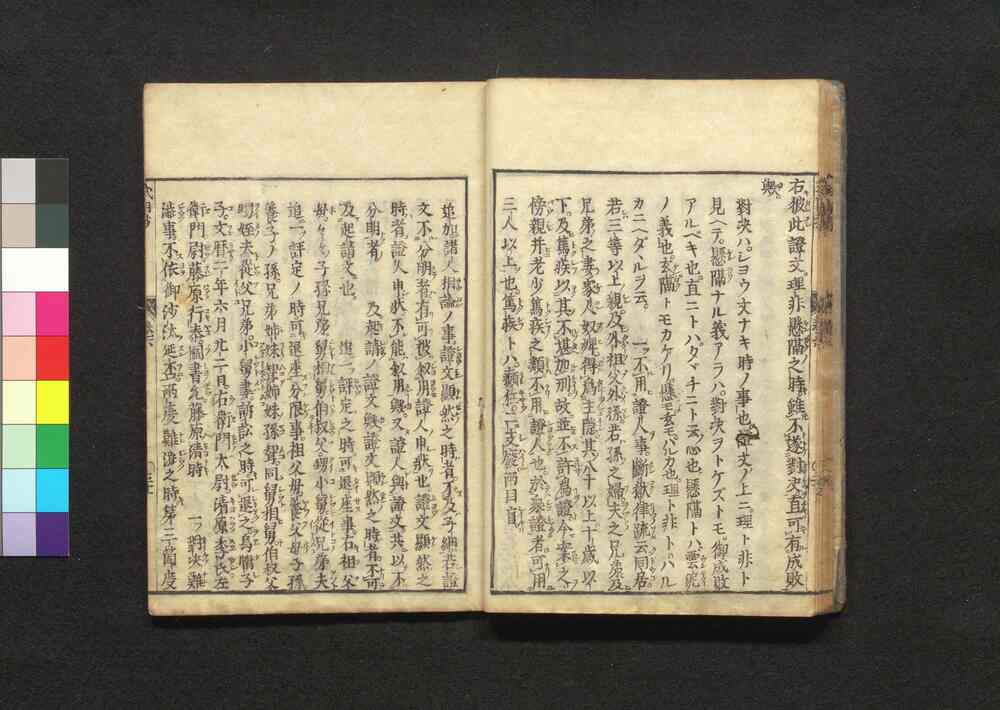 右彼此證文理非懸隔之時雖不遂對決直可有成敗
歟
對決ハショウ文ナキ時ノ事也證文ノ上ニ理ト非ト
見ヘテ懸隔ナル義アラハ對決ヲトケズトモ御成敗
アルベキ也直ニトハタヾチニト云心也懸隔トハ雲泥
ノ義也玄隔トモカケリ懸モ玄モハルカ也理ト非トハハル
カニヘダヽルヲ云 一不用證人事斷獄律疏云同居
若三等以上親及外祖父外孫若孫之婦夫之兄弟及
兄弟之妻家人奴婢得爲主隱其八十以上十歳以
下及篤疾以其不堪加刑故並不許爲證今案之
傍親并老少篤疾之類不用證人也於衆證者可用
三人以上也篤疾トハ癲狂二支廢兩目盲
追加諸人相論ノ事證文顯然之時者不及子細若證
文不分明者有可被叙用證人申狀也證文顯然之
時者證人申狀不能叙用歟又證人與證文共以不
分明者 及起請證文歟證文顯然之時者不可
及起請文也 追一評定之時可退座事右祖父
母父母子孫兄弟舅相舅伯叔父甥小舅從兄弟夫
追一評定ノ時可退座分限事祖父母養父母子孫
養子ノ孫兄弟姉妹聟姉妹孫聟同舅相舅伯叔父
甥姪夫從父兄弟小舅妻訴訟之時可退之烏帽子
子文暦二年六月九二日右衞門大尉清原季氏左
衞門尉藤原行泰圖書允藤原清時 一對決難
澁事不依御沙汰延否兩度難澁之時第三箇度